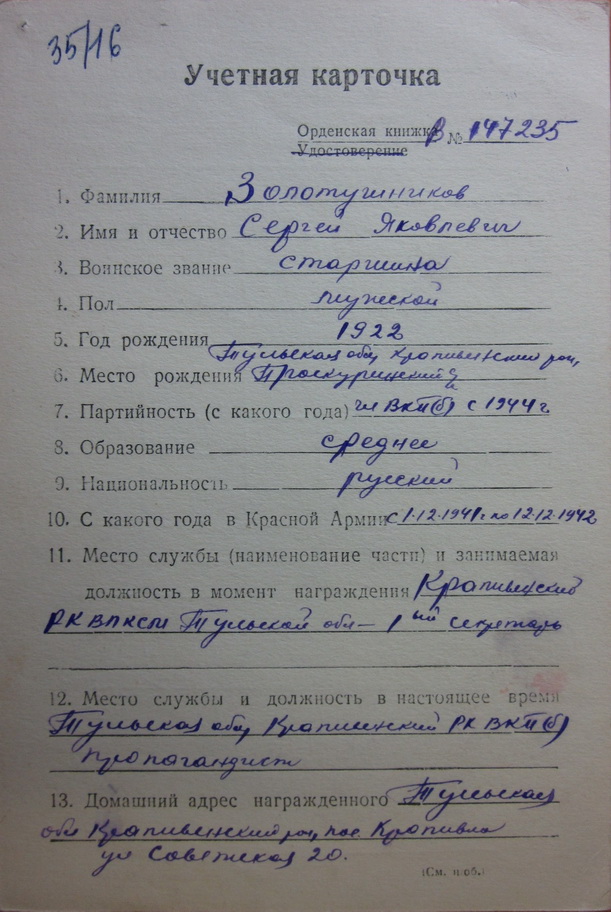 35/16
Учетная карточка
Орденская книжка В № 147235
Удостоверение
1. Фамилия Золотушников
2. Имя и отчество Сергей Яковлевич
3. Воинское звание старшина
4. Пол мужской
5. Год рождения 1922
Тульская обл Крапивенский рон,
6. Место рождения Проскуринский
7. Партийность (с какого года) чл ВКП(б) с 1944 г
8. Образование среднее
9. Национальность русский
10. С какого года в Красной Армии с 1.12.1941г по 12.12.1942
11. Место службы (наименование части) и занимаемая
должность в момент награждения Крапивенский
РК ВЛКСМ Тульской обл – 1ый секретарь
12. Место службы и должность в настоящее время
Тульская обл Крапивенский РК ВКП(б)
пропагандист
13. Домашний адрес награжденного Тульская
обл Крапивенский рон, пос Крапивна
ул Советская 20.
(См. н/об.)